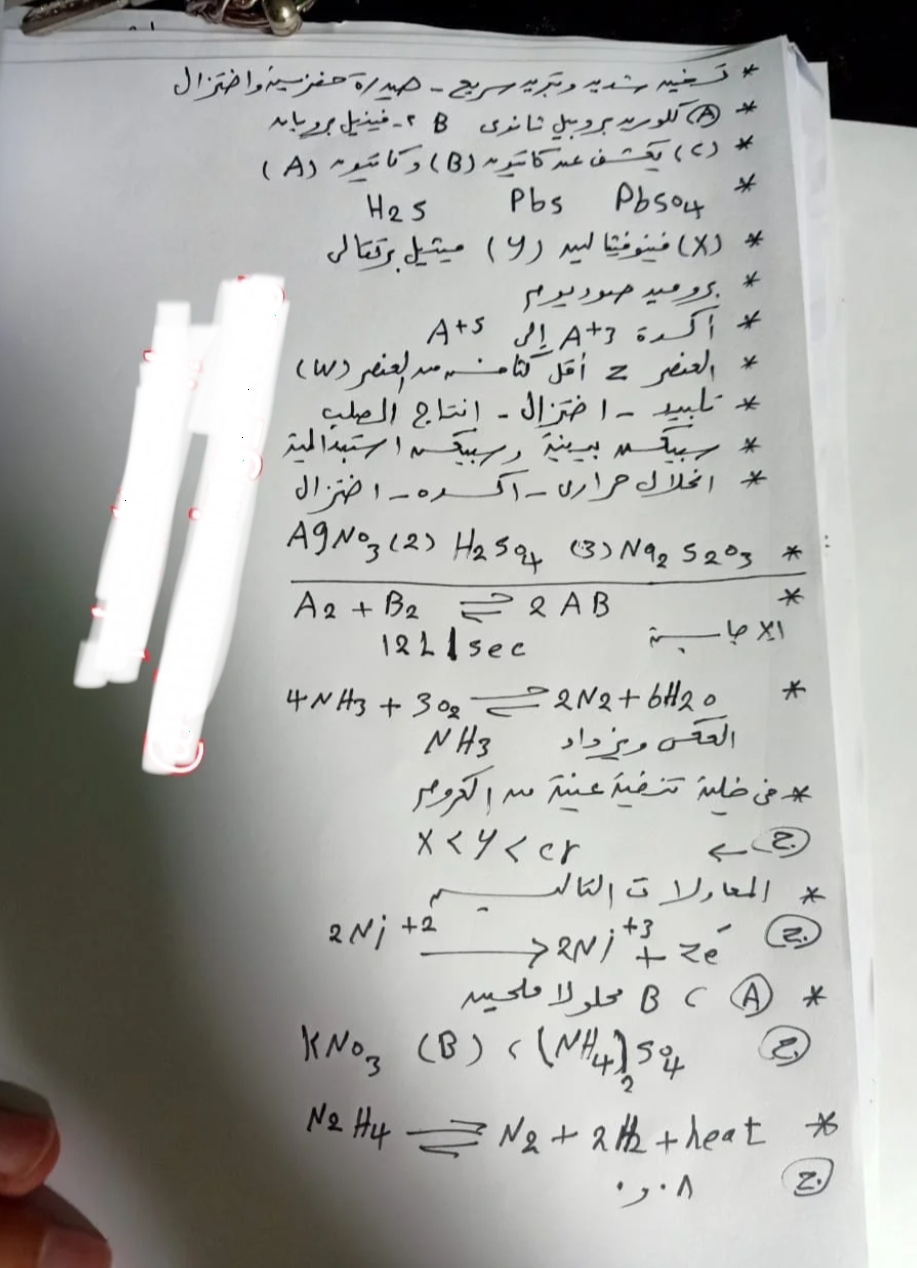 * تسخين شديد وتبريد سريع - هيدرة حفزية واختزال
* (A) كلوريد بروبيل ثانوى B ٢- فينيل بروبان
* (C) يكشف عن كاتيون (B) وكاتيون (A)
* H2S PbS PbSO4
* (X) فينوفيثالين (Y) ميثيل برتقالى
* بروميد صوديوم
* أكسدة A+3 إلى A+5
* العنصر Z أقل كثافة من العنصر (W)
* تلبيد - اختزال - انتاج الصلب
* سبيكة بينية وسبيكة استبدالية
* انحلال حرارى - اكسده - اختزال
* AgNO3 (2) H2SO4 (3) Na2S2O3
* A2 + B2 ⇌ 2AB
الاجابة 12L/sec
* 4NH3 + 3O2 ⇌ 2N2 + 6H2O
العكس ويزداد NH3
* فى خلية تنقية عينة من الكروم
ج ← X < Y < cr
* المعادلات التالية
ج 2Ni+2 → 2Ni+3 + 2e-
* A ، B محلولا ملحين
ج KNO3 (B) ، (NH4)2SO4
* N2H4 ⇌ N2 + 2H2 + heat
ج ٠٫٠٨